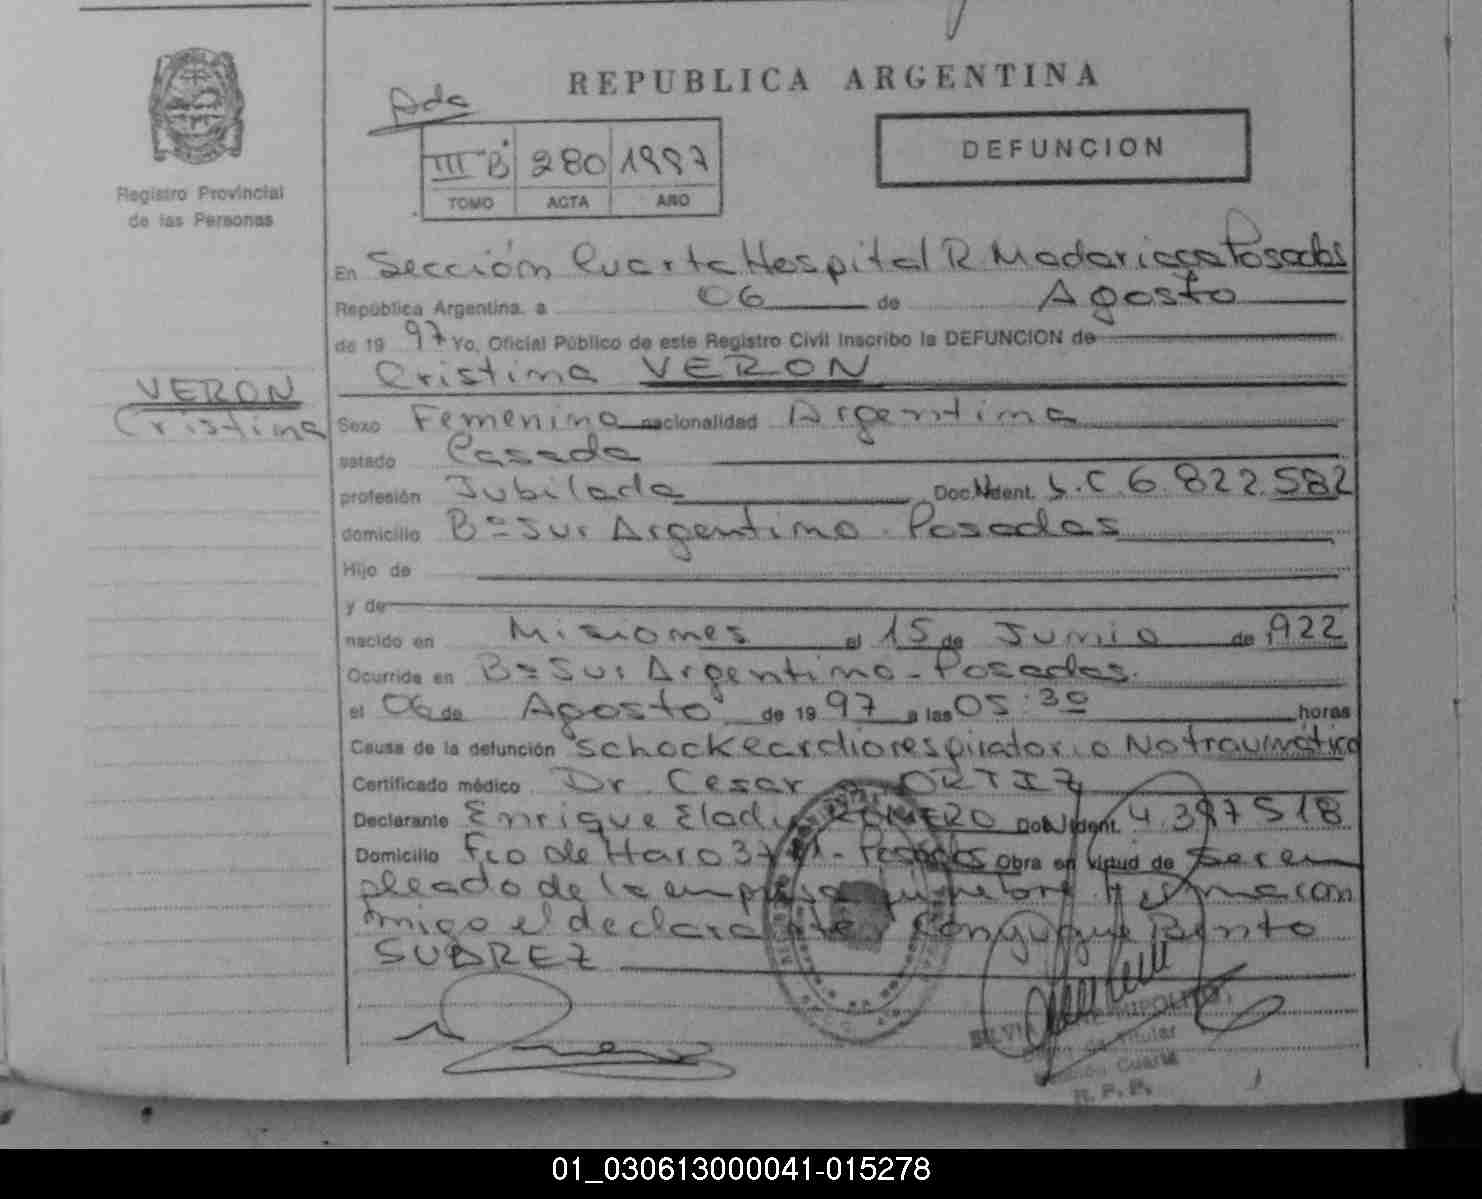 REPUBLICA ARGENTINA
Ada
III "B" 280 1997
TOMO ACTA AÑO
DEFUNCION
Registro Provincial
de las Personas
En Sección Cuarta Hospital R. Madariaga Posadas
República Argentina, a 06 de Agosto
de 1997 Yo, Oficial Público de este Registro Civil Inscribo la DEFUNCION de
Cristina VERON
VERON
Cristina
Sexo Femenino nacionalidad Argentina
estado Casada
profesión Jubilada Doc. Ident. L.C 6.822.582
domicilio Bº Sur Argentino - Posadas
Hijo de
y de
nacido en Misiones el 15 de Junio de 1922
Ocurrida en Bº Sur Argentino - Posadas.
el 06 de Agosto de 1997 a las 05:30 horas
Causa de la defunción Schock cardiorespiratorio No traumático
Certificado médico Dr. Cesar ORTIZ
Declarante Enrique Eladio ROMERO Doc. Ident. 4.397518
Domicilio Fco de Haro - Posadas Obra en virtud de ser em
pleado de la empresa funebre y firma con
migo el declarante Conyugue Benito
SUAREZ
SILVIA HIPOLITO
Titular
Sección Cuarta
R. P. P.
01_030613000041-015278